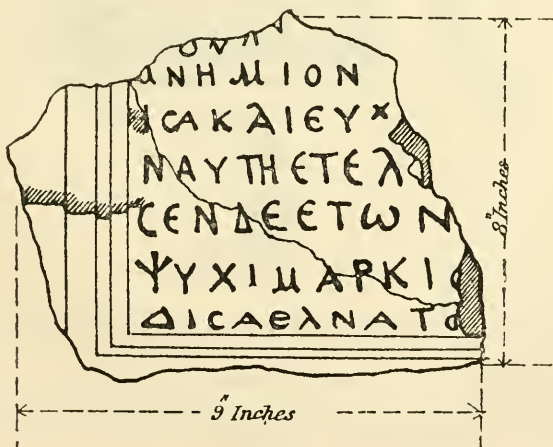 ΜΝΗΜΙΟΝ
ΙϹΑΚΑΙΕΥΧ
ΝΑΥΤΗΕΤΕΛ
ϹΕΝΔΕΕΤΩΝ
ΨΥΧΙΜΑΡΚΙΟ
ΔΙϹΑΘΑΝΑΤΟ
8" Inches
9" Inches